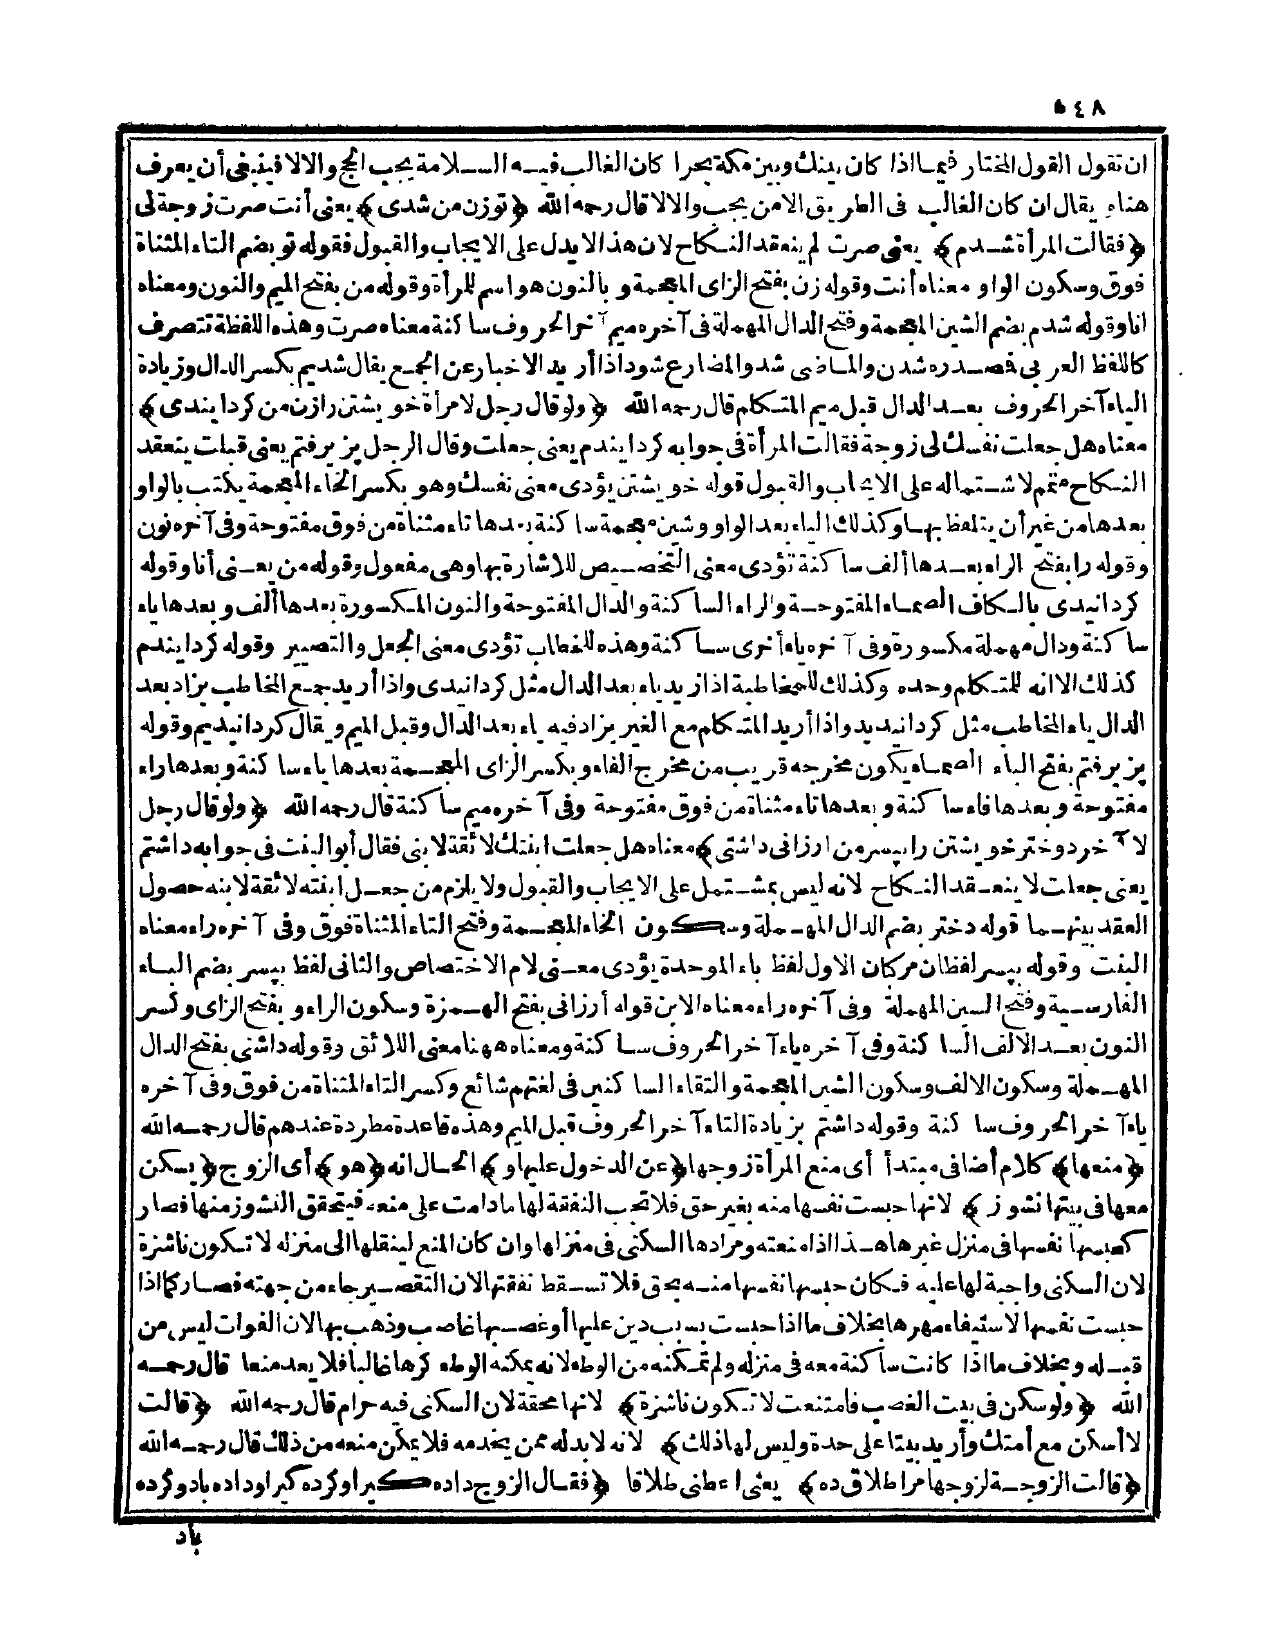 ٥٤٨
ان تقول القول المختار فيما اذا كان بينك وبين مكة بحرا كان الغالب فيه السلامة يجب الحج والا لا فينبغي أن يعرف
هناه يقال ان كان الغالب فى الطريق الامن يجب والا لا قال رحمه الله ﴿توزن من شدى﴾ يعنى أنت صرت زوجة لى
﴿فقالت المرأة شدم﴾ يعنى صرت لم ينعقد النكاح لان هذا لا يدل على الايجاب والقبول فقوله تو بضم التاء المثناة
فوق وسكون الواو معناه أنت وقوله زن بفتح الزاى المعجمة وبالنون هو اسم للمرأة وقوله من بفتح الميم والنون ومعناه
انا وقوله شدم بضم الشين المعجمة وفتح الدال المهملة فى آخره ميم آخر الحروف ساكنة معناه صرت وهذه اللفظة تتصرف
كاللفظ العربى فمصدره شدن والماضى شد والمضارع شود اذا أريد الاخبار عن الجمع يقال شديم بكسر الدال وزيادة
الياء آخر الحروف بعد الدال قبل ميم المتكلم قال رحمه الله ﴿ولو قال رجل لامرأة خويشتن رازن من كردايندى﴾
معناه هل جعلت نفسك لى زوجة فقالت المرأة فى جوابه كردايندم يعنى جعلت وقال الرجل پزيرفتم يعنى قبلت ينعقد
النكاح متهم لاشتماله على الايجاب والقبول قوله خويشتن يؤدى معنى نفسك وهو بكسر الخاء المعجمة يكتب بالواو
بعدها من غير أن يتلفظ بها وكذلك الياء بعد الواو وشين معجمة ساكنة بعدها تاء مثناة من فوق مفتوحة وفى آخره نون
وقوله را بفتح الراء بعدها ألف ساكنة تؤدى معنى التخصيص للاشارة بها وهى مفعول وقوله من يعنى أنا وقوله
كردانيدى بالكاف الصماء المفتوحة والراء الساكنة والدال المفتوحة والنون المكسورة بعدها ألف وبعدها ياء
ساكنة ودال مهملة مكسورة وفى آخره ياء أخرى ساكنة وهذه للخطاب تؤدى معنى الجعل والتصيير وقوله كردايندم
كذلك الا انه للمتكلم وحده وكذلك للمخاطبة اذا زيد ياء بعد الدال مثل كردانيدى واذا أريد جمع المخاطب يزاد بعد
الدال ياء المخاطب مثل كردانيديد واذا أريد المتكلم مع الغير يزاد فيه ياء بعد الدال وقبل الميم ويقال كردانيديم وقوله
پزيرفتم بفتح الباء الصماء يكون مخرجه قريب من مخرج الفاء وبكسر الزاى المعجمة بعدها ياء ساكنة وبعدها راء
مفتوحة وبعدها فاء ساكنة وبعدها تاء مثناة من فوق مفتوحة وفى آخره ميم ساكنة قال رحمه الله ﴿ولو قال رجل
لآخر دوختر خويشتن را پيسر من ارزانى داشتى﴾ معناه هل جعلت ابنتك لائقة لابنى فقال أبو البنت فى جوابه داشتم
يعنى جعلت لا ينعقد النكاح لانه ليس بمشتمل على الايجاب والقبول ولا يلزم من جعل ابنته لائقة لابنه حصول
العقد بينهما قوله دختر بضم الدال المهملة وسكون الخاء المعجمة وفتح التاء المثناة فوق وفى آخره راء معناه
البنت وقوله پيسر لفظان مركان الاول لفظ باء الموحدة يؤدى معنى لام الاختصاص والثانى لفظ پيسر بضم الباء
الفارسية وفتح السين المهملة وفى آخره راء معناه الابن قوله أرزانى بفتح الهمزة وسكون الراء وبفتح الزاى وكسر
النون بعد الالف الساكنة وفى آخره ياء آخر الحروف ساكنة ومعناه ههنا معنى اللائق وقوله داشتى بفتح الدال
المهملة وسكون الالف وسكون الشين المعجمة والتقاء الساكنين فى لغتهم شائع وكسر التاء المثناة من فوق وفى آخره
ياء آخر الحروف ساكنة وقوله داشتم بزيادة التاء آخر الحروف قبل الميم وهذه قاعدة مطردة عندهم قال رحمه الله
﴿منعها﴾ كلام أضافى مبتدأ أى منع المرأة زوجها ﴿عن الدخول عليها و﴾ الحال انه ﴿هو﴾ أى الزوج ﴿يسكن
معها فى بيتها نشوز﴾ لانها حبست نفسها منه بغير حق فلا تجب النفقة لها مادامت على منعه فيتحقق النشوز منها فصار
كحبسها نفسها فى منزل غيرها هذا اذا منعته ومرادها السكنى فى منزلها وان كان المنع لينقلها الى منزله لا تكون ناشزة
لان السكنى واجبة لها عليه فكان حبسها نفسها منه بحق فلا تسقط نفقتها لان التقصير جاء من جهته فصار كما اذا
حبست نفسها لاستيفاء مهرها بخلاف ما اذا حبست بسبب دين عليها أو غصبها غاصب وذهب بها لان الفوات ليس من
قبله وبخلاف ما اذا كانت ساكنة معه فى منزله ولم تمكنه من الوطء لانه يمكنه الوطء كرها غالبا فلا يعد منعا قال رحمه
الله ﴿ولو سكن فى بيت الغصب فامتنعت لا تكون ناشزة﴾ لانها محقة لان السكنى فيه حرام قال رحمه الله ﴿قالت
لا أسكن مع أمتك وأريد بيتا على حدة وليس لها ذلك﴾ لانه لا بد له ممن يخدمه فلا يمكن منعه من ذلك قال رحمه الله
﴿قالت الزوجة لزوجها مرا طلاق ده﴾ يعنى اعطنى طلاقا ﴿فقال الزوج داده كير او كرده كير او داده باد و كرده
باد